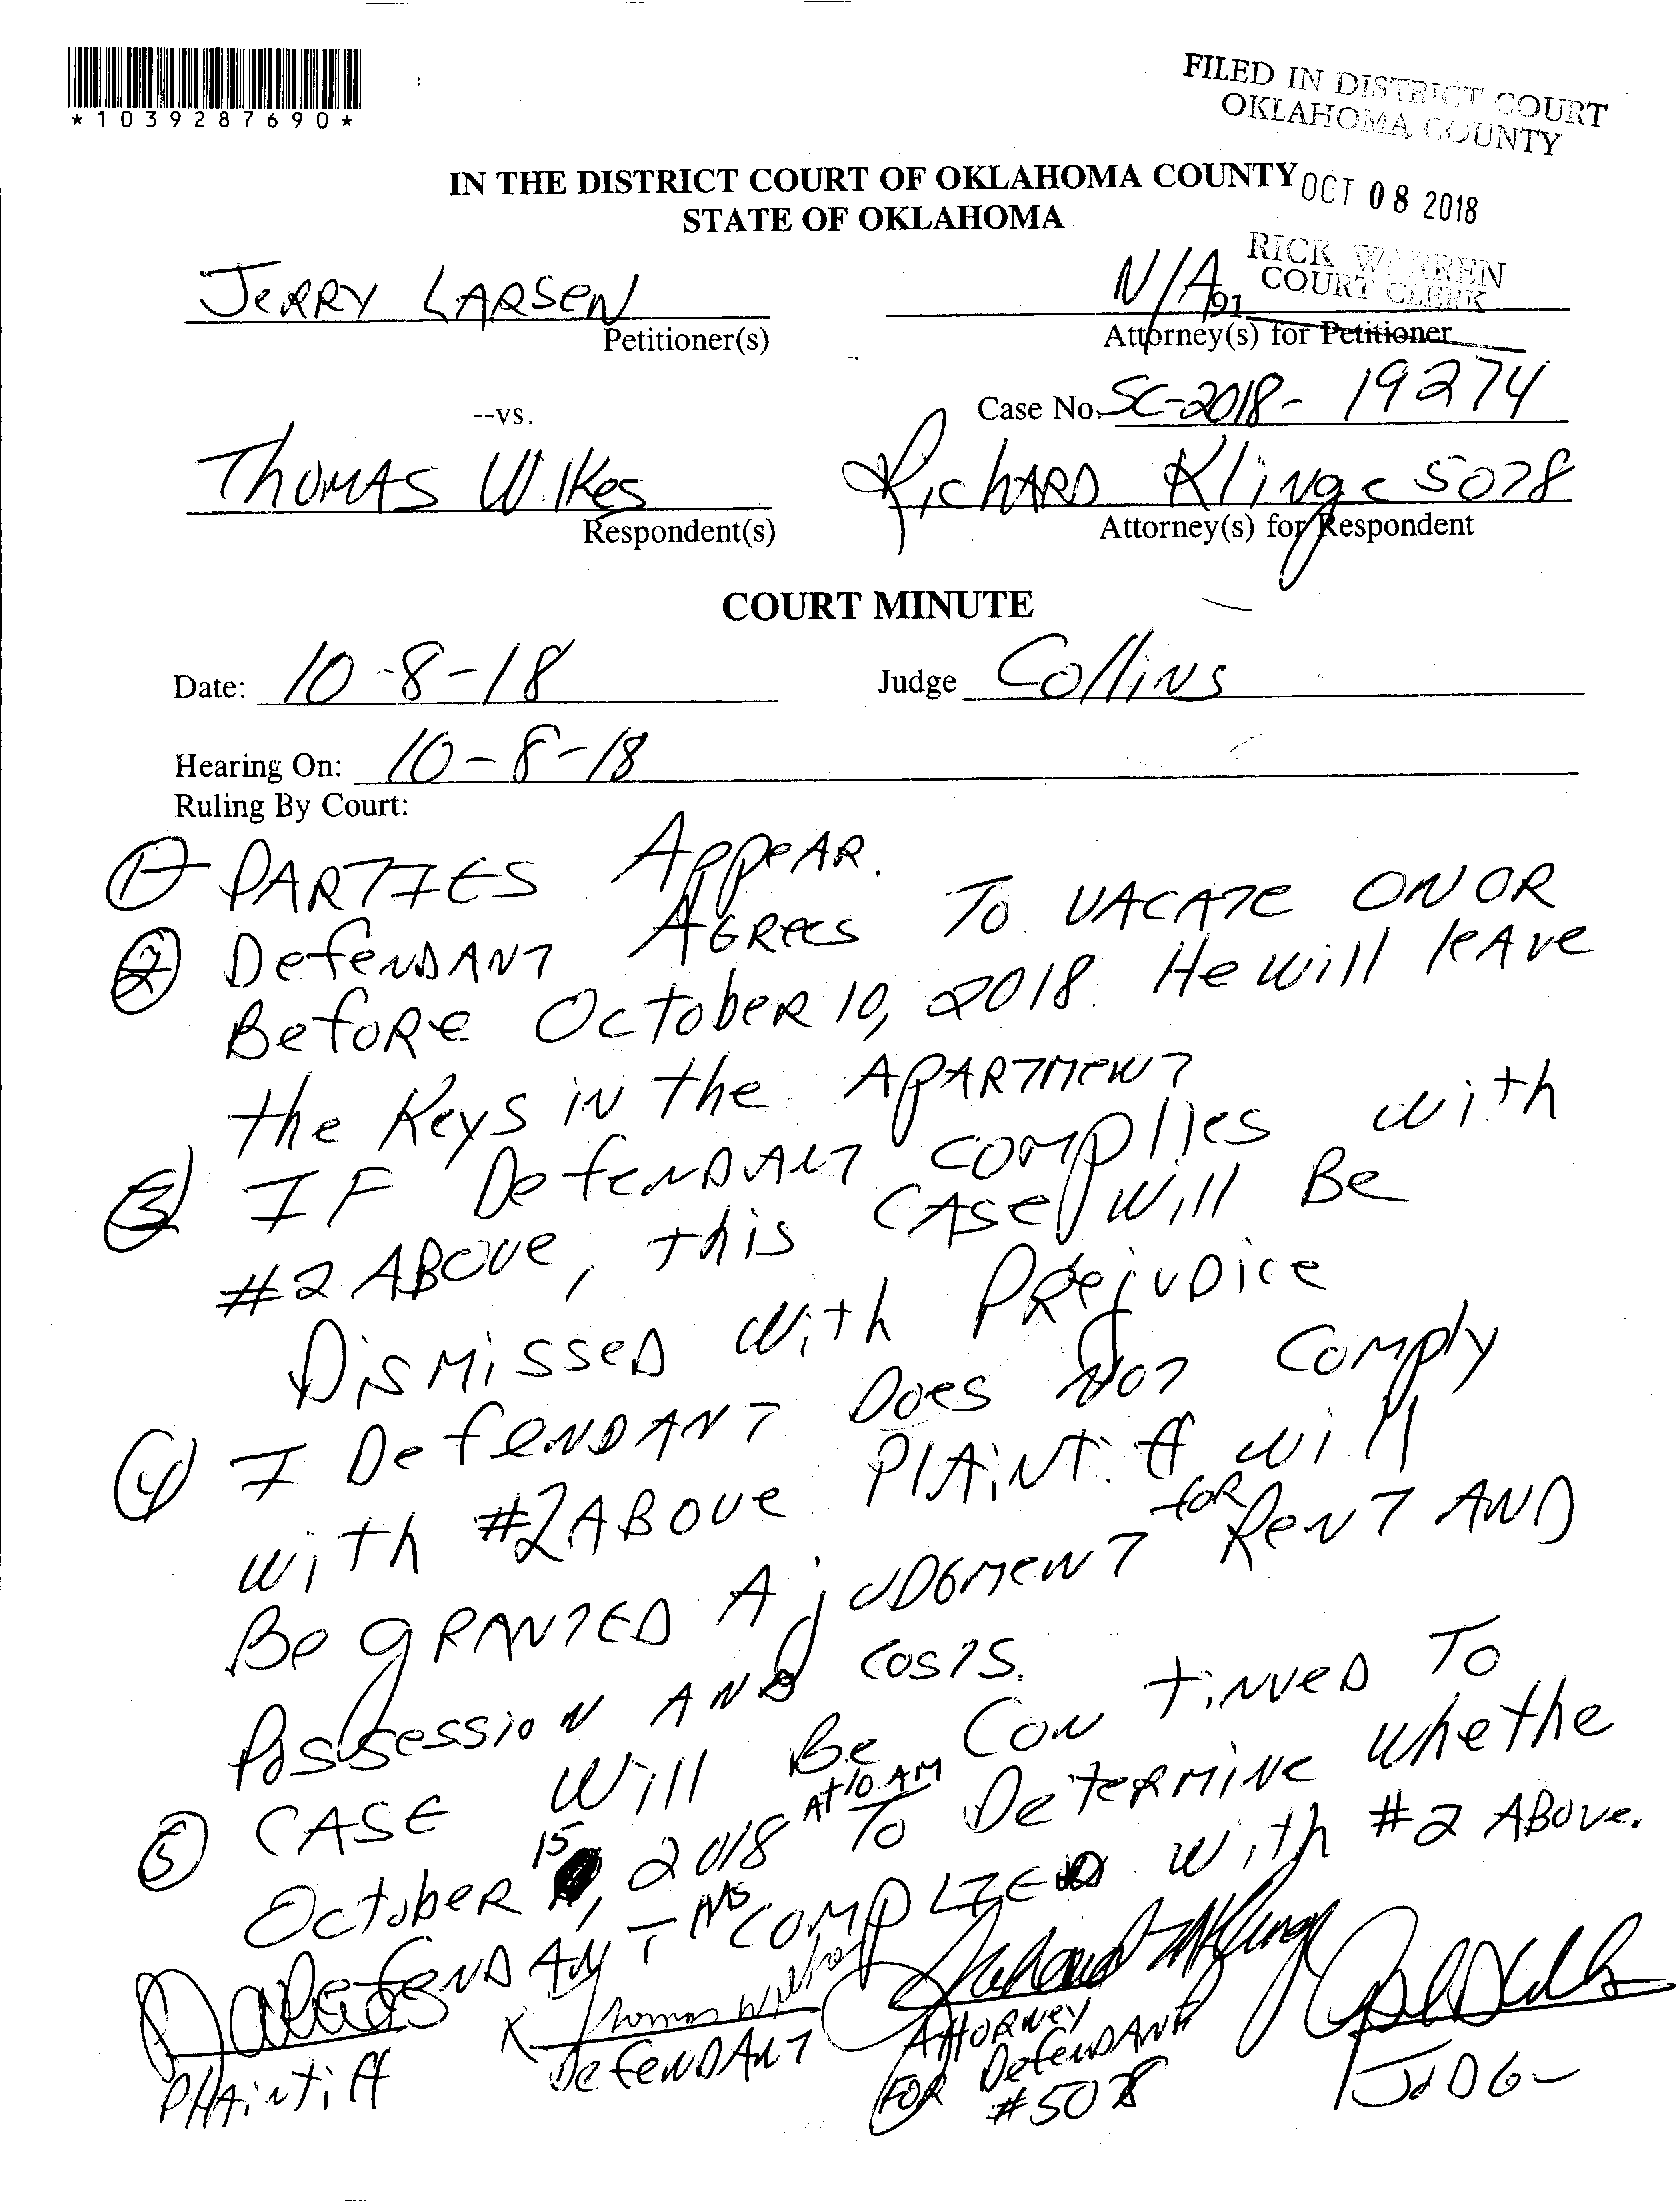 *1039287690*
FILED IN DISTRICT COURT
OKLAHOMA COUNTY
IN THE DISTRICT COURT OF OKLAHOMA COUNTY
OCT 08 2018
STATE OF OKLAHOMA
RICK WARREN
COURT CLERK
JERRY LARSEN N/A
91
Petitioner(s) Attorney(s) for Petitioner
Case No. SC-2018- 19274
--vs.
Thomas Wilkes Richard Klinge 5078
Respondent(s) Attorney(s) for Respondent
COURT MINUTE
Date: 10-8-18 Judge Collins
Hearing On: 10-8-18
Ruling By Court:
1 PARTIES APPEAR.
2 DEFENDANT AGREES TO VACATE ON OR
BEFORE OCTOBER 10, 2018. He will leave
the Keys in the APARTMENT
3 IF DEFENDANT complies with
#2 ABOVE, this CASE Will Be
Dismissed With Prejudice
4 I DEFENDANT Does Not Comply
with #2 ABOVE Plaintiff will
Be GRANTED A judgment for Rent AND
Possession AND costs.
5 CASE Will Be Continued To
October 15, 2018 At 10 AM To Determine whethe
Defendant has COMPLIED With #2 ABOVE.
X Thomas
Plaintiff
DEFENDANT
Attorney
FOR Defendant
#5078
Judge